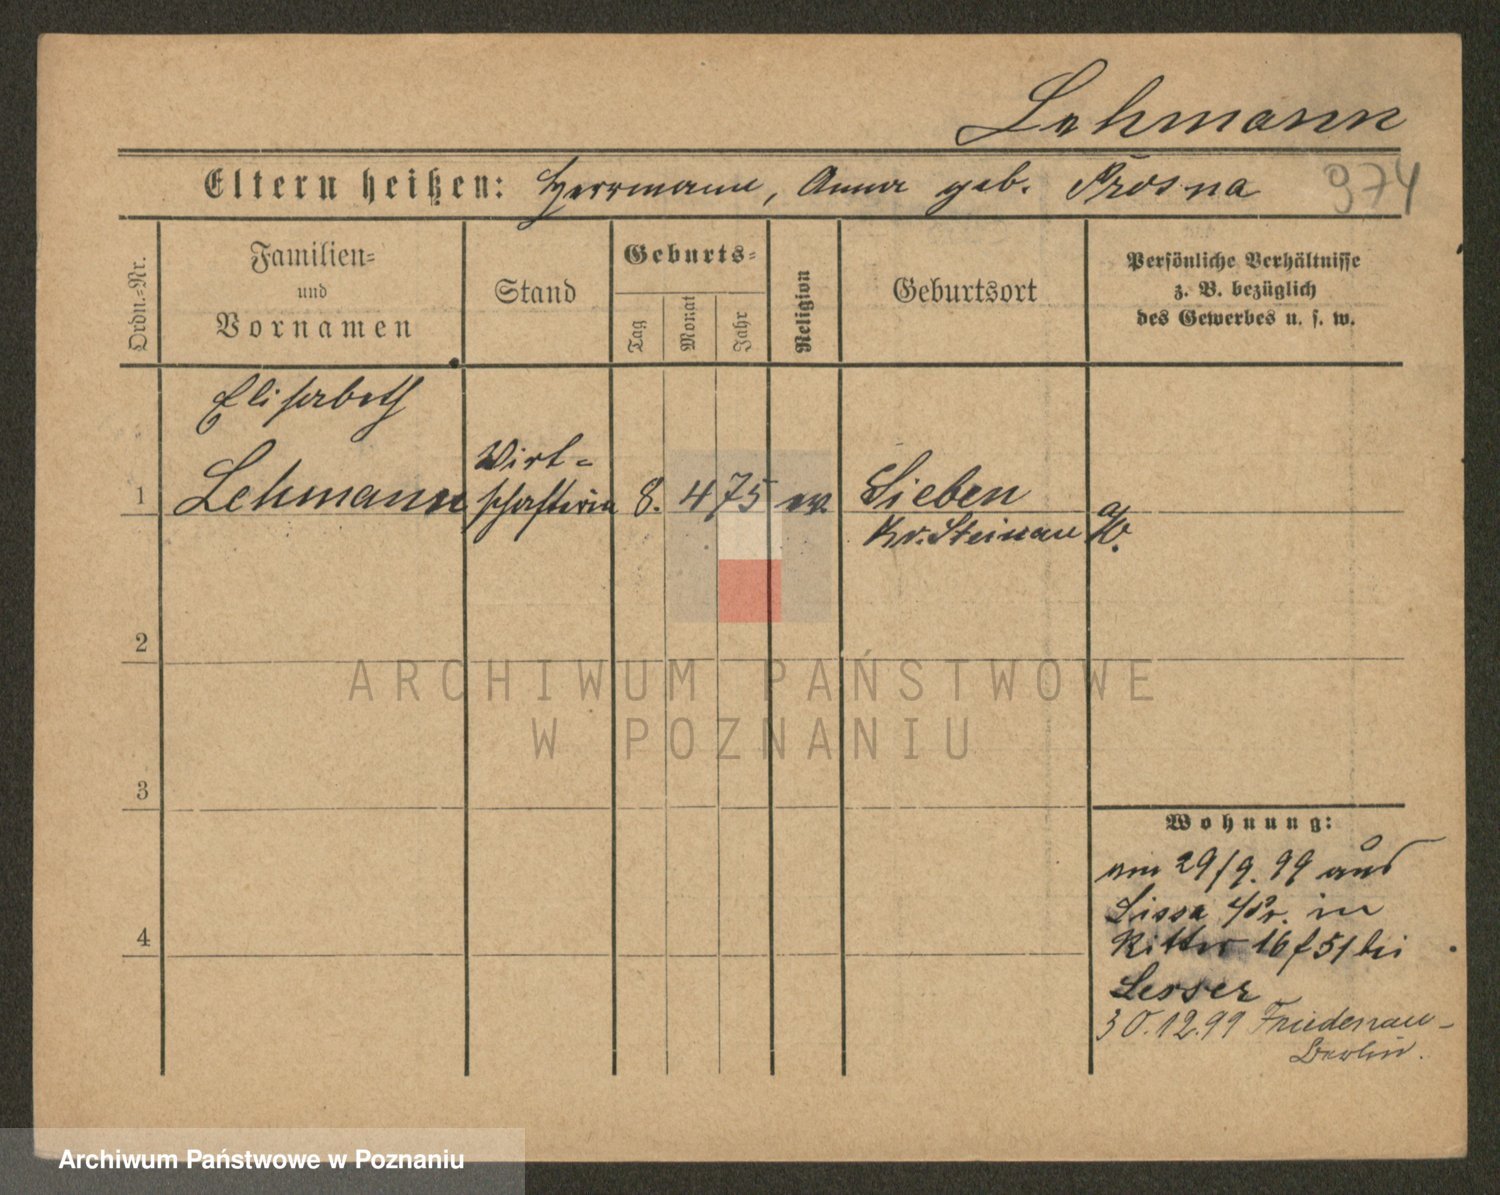 Lehmann
Eltern heißen: Herrmann, Anna geb. Prosna 974
Ordn.-Nr.
Familien-
und
Vornamen
Stand
Geburts-
Tag
Monat
Jahr
Religion
Geburtsort
Persönliche Verhältnisse
z. B. bezüglich
des Gewerbes u. s. w.
Elisabeth
1 Lehmann Wirt-
schafterin 8. 4 75 ev. Sieben
Kr. Steinau a/O.
2
ARCHIWUM PAŃSTWOWE
W POZNANIU
3
Wohnung:
am 29/9. 99 aus
Lissa i/Pr. in
Ritter 16 f 51 bei
Lesser
30.12.99 Friedenau-
Berlin.
4
Archiwum Państwowe w Poznaniu